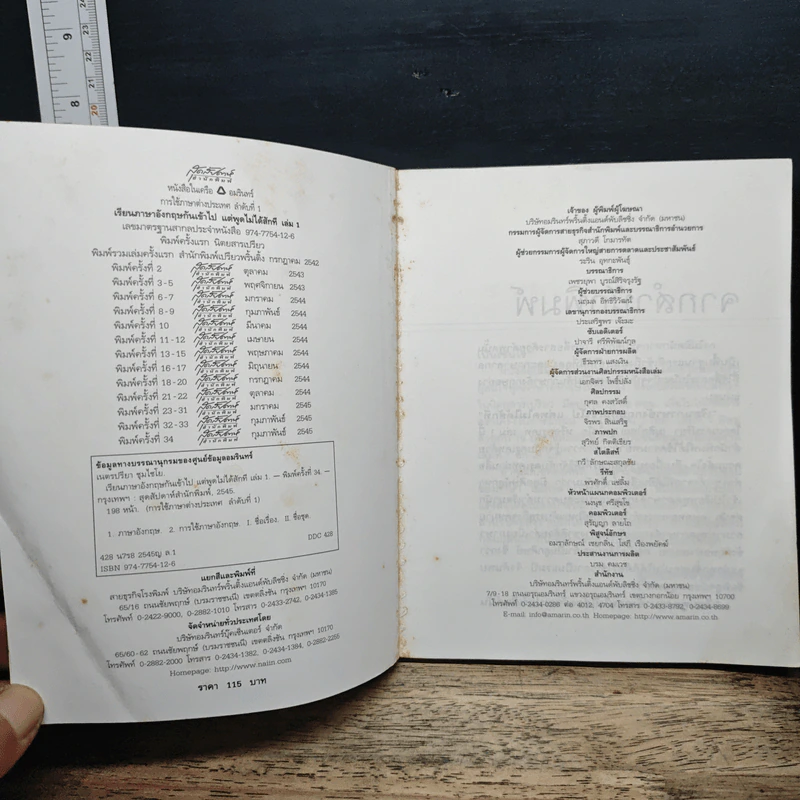 9
8
20
สุดสัปดาห์
สำนักพิมพ์
หนังสือในเครือ อมรินทร์
การใช้ภาษาต่างประเทศ ลำดับที่ 1
เรียนภาษาอังกฤษกันเข้าไป แต่พูดไม่ได้สักที เล่ม 1
เลขมาตรฐานสากลประจำหนังสือ 974-7754-12-6
พิมพ์ครั้งแรก นิตยสารเปรียว
พิมพ์รวมเล่มครั้งแรก สำนักพิมพ์เปรียวพริ้นติ้ง กรกฎาคม 2542
พิมพ์ครั้งที่ 2 สุดสัปดาห์ สำนักพิมพ์ ตุลาคม 2543
พิมพ์ครั้งที่ 3-5 สุดสัปดาห์ สำนักพิมพ์ พฤศจิกายน 2543
พิมพ์ครั้งที่ 6-7 สุดสัปดาห์ สำนักพิมพ์ มกราคม 2544
พิมพ์ครั้งที่ 8-9 สุดสัปดาห์ สำนักพิมพ์ กุมภาพันธ์ 2544
พิมพ์ครั้งที่ 10 สุดสัปดาห์ สำนักพิมพ์ มีนาคม 2544
พิมพ์ครั้งที่ 11-12 สุดสัปดาห์ สำนักพิมพ์ เมษายน 2544
พิมพ์ครั้งที่ 13-15 สุดสัปดาห์ สำนักพิมพ์ พฤษภาคม 2544
พิมพ์ครั้งที่ 16-17 สุดสัปดาห์ สำนักพิมพ์ มิถุนายน 2544
พิมพ์ครั้งที่ 18-20 สุดสัปดาห์ สำนักพิมพ์ กรกฎาคม 2544
พิมพ์ครั้งที่ 21-22 สุดสัปดาห์ สำนักพิมพ์ ตุลาคม 2544
พิมพ์ครั้งที่ 23-31 สุดสัปดาห์ สำนักพิมพ์ มกราคม 2545
พิมพ์ครั้งที่ 32-33 สุดสัปดาห์ สำนักพิมพ์ กุมภาพันธ์ 2545
พิมพ์ครั้งที่ 34 สุดสัปดาห์ สำนักพิมพ์ กุมภาพันธ์ 2545
ข้อมูลทางบรรณานุกรมของศูนย์ข้อมูลอมรินทร์
เนตรปรียา ชุมไชโย.
เรียนภาษาอังกฤษกันเข้าไป แต่พูดไม่ได้สักที เล่ม 1. — พิมพ์ครั้งที่ 34. —
กรุงเทพฯ : สุดสัปดาห์สำนักพิมพ์, 2545.
198 หน้า. (การใช้ภาษาต่างประเทศ ลำดับที่ 1)
1. ภาษาอังกฤษ. 2. การใช้ภาษาอังกฤษ. I. ชื่อเรื่อง. II. ชื่อชุด.
DDC 428
428 น785 2545ญ ล.1
ISBN 974-7754-12-6
แยกสีและพิมพ์ที่
สายธุรกิจโรงพิมพ์ บริษัทอมรินทร์พริ้นติ้งแอนด์พับลิชชิ่ง จำกัด (มหาชน)
65/16 ถนนชัยพฤกษ์ (บรมราชชนนี) เขตตลิ่งชัน กรุงเทพฯ 10170
โทรศัพท์ 0-2422-9000, 0-2882-1010 โทรสาร 0-2433-2742, 0-2434-1385
จัดจำหน่ายทั่วประเทศโดย
บริษัทอมรินทร์บุ๊คเซ็นเตอร์ จำกัด
65/60-62 ถนนชัยพฤกษ์ (บรมราชชนนี) เขตตลิ่งชัน กรุงเทพฯ 10170
โทรศัพท์ 0-2882-2000 โทรสาร 0-2434-1382, 0-2434-1383, 0-2882-2255
Homepage: http://www.naiin.com
ราคา 115 บาท
เจ้าของ ผู้พิมพ์ผู้โฆษณา
บริษัทอมรินทร์พริ้นติ้งแอนด์พับลิชชิ่ง จำกัด (มหาชน)
กรรมการผู้จัดการสายธุรกิจสำนักพิมพ์และบรรณาธิการอำนวยการ
สุภาวดี โกมารทัต
ผู้ช่วยกรรมการผู้จัดการใหญ่สายการตลาดและประชาสัมพันธ์
ระริน อุทกะพันธุ์
บรรณาธิการ
เพชรยุพา บูรณ์สิริจรุงรัฐ
ผู้ช่วยบรรณาธิการ
นฤมล อิทธิวิวัฒน์
เลขานุการกองบรรณาธิการ
ประเสริฐพร เจ๊ยมะ
ซับเอดิเตอร์
ปาจารี ศรีพิพัฒน์กุล
ผู้จัดการฝ่ายการผลิต
ธีระพร แสงเงิน
ผู้จัดการส่วนงานศิลปกรรมหนังสือเล่ม
เอกจิตร โพธิ์ปลั่ง
ศิลปกรรม
กุศล คงสวัสดิ์
ภาพประกอบ
จิรพร สินเสริฐ
ภาพปก
สุวิทย์ กิตติเธียร
สไตลิสท์
ทวี ลักษณะสกุลชัย
รีทัช
พรศักดิ์ แซ่ลิ้ม
หัวหน้าแผนกคอมพิวเตอร์
นงนุช ศรีสุขโข
คอมพิวเตอร์
สุรัญญา ลายไถ
พิสูจน์อักษร
อมราลักษณ์ เชยกลิ่น, โสภี เรืองพยัคฆ์
ประสานงานการผลิต
บรม คมเวช
สำนักงาน
บริษัทอมรินทร์พริ้นติ้งแอนด์พับลิชชิ่ง จำกัด (มหาชน)
7/9-18 ถนนอรุณอมรินทร์ แขวงอรุณอมรินทร์ เขตบางกอกน้อย กรุงเทพฯ 10700
โทรศัพท์ 0-2434-0286 ต่อ 4012, 4704 โทรสาร 0-2433-8792, 0-2434-8699
E-mail: info@amarin.co.th Homepage: http://www.amarin.co.th